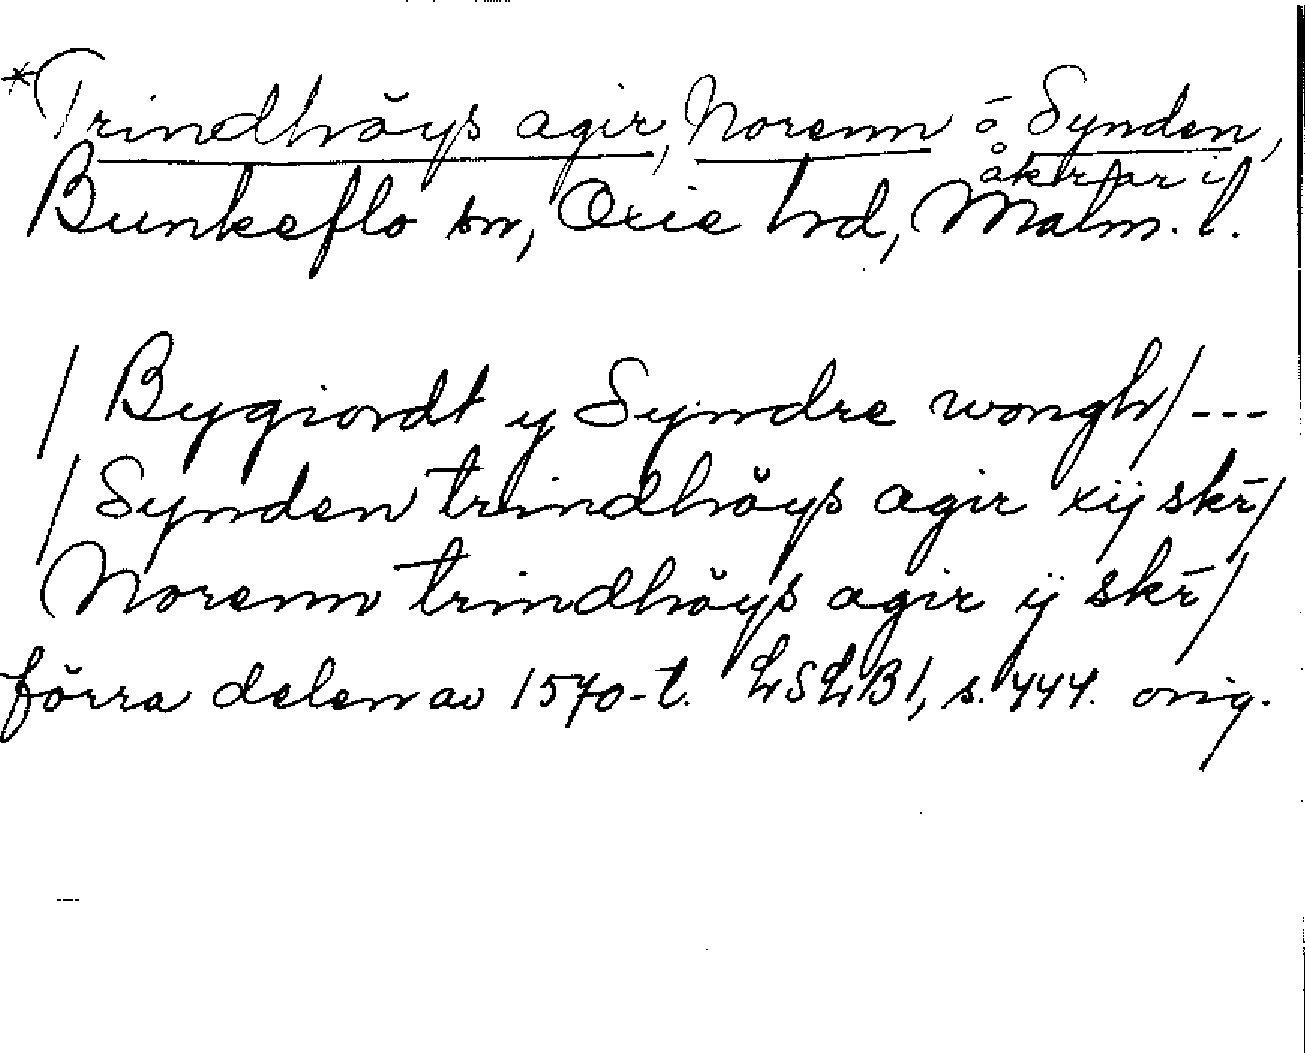 *Trindhöys agir, Norenn o Synden,
åkrar i
Bunkeflo sn, Oxie hd, Malm. l.
/ Bygiordt y Syndre wongh/ ---
/ Synden trindhöys agir xij skr̄/
Norenn trindhöys agir ij skr̄/
förra delen av 1570-t. LSLB1, s. 444. orig.